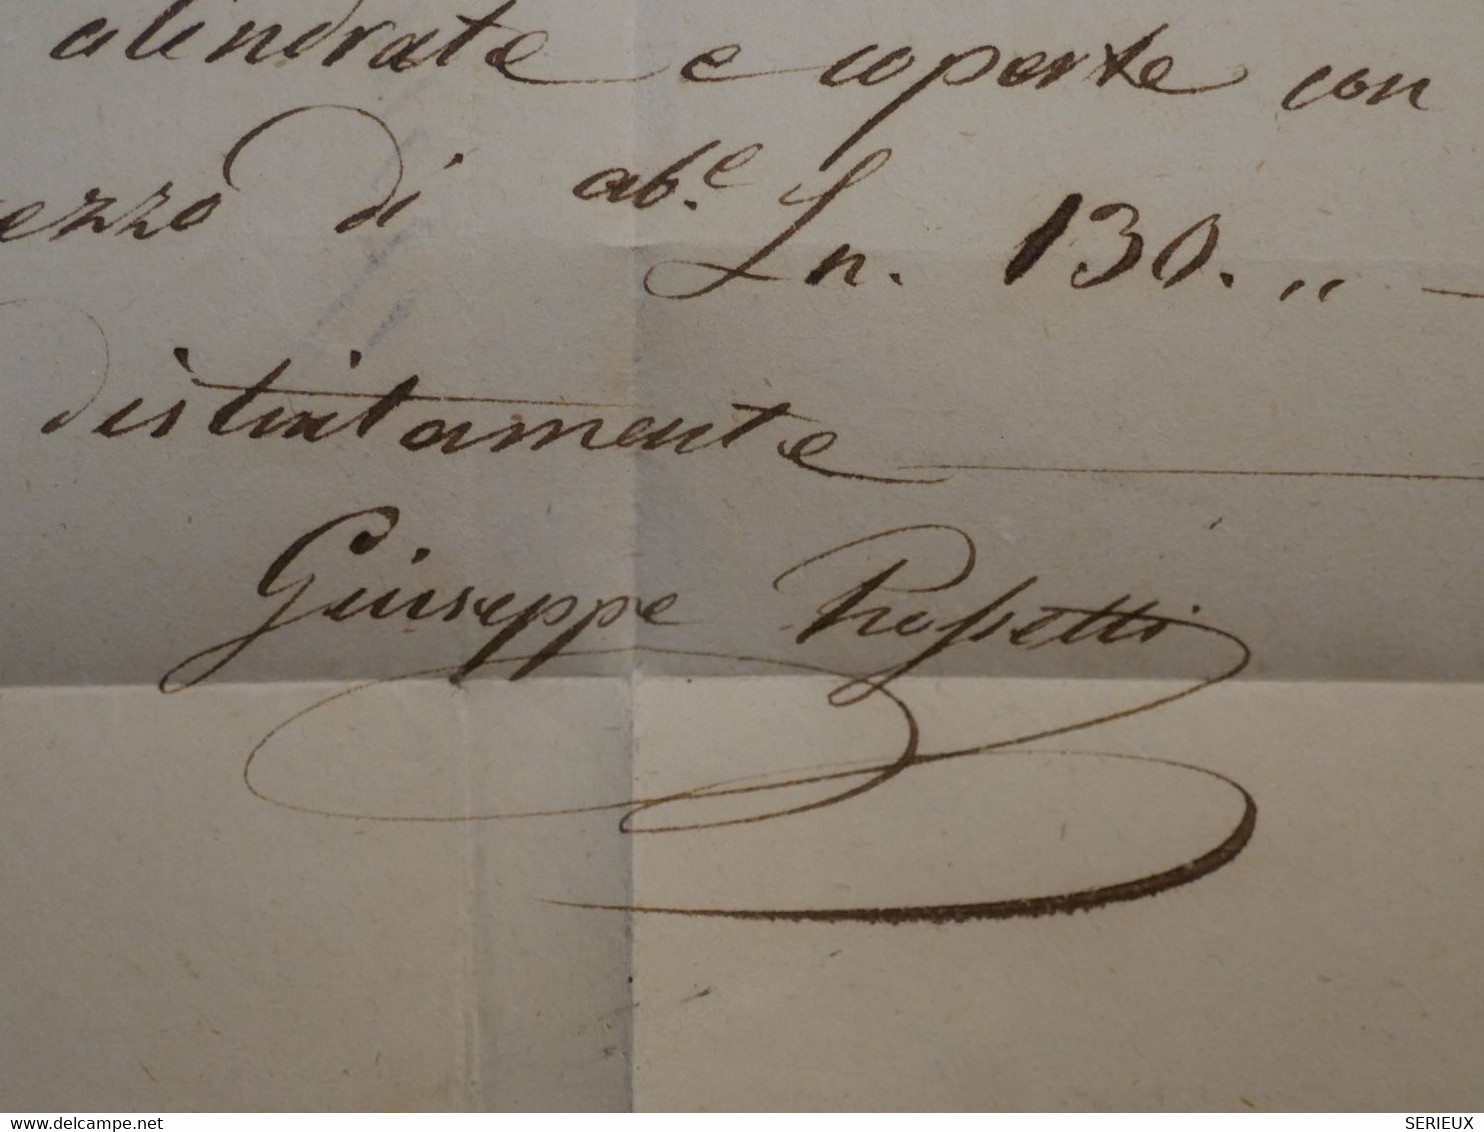 cilindrate e coperte con
ezzo di ab.e Ln. 130. „ —
distintamente
Giuseppe Rossetti
delcampe.net
SERIEUX